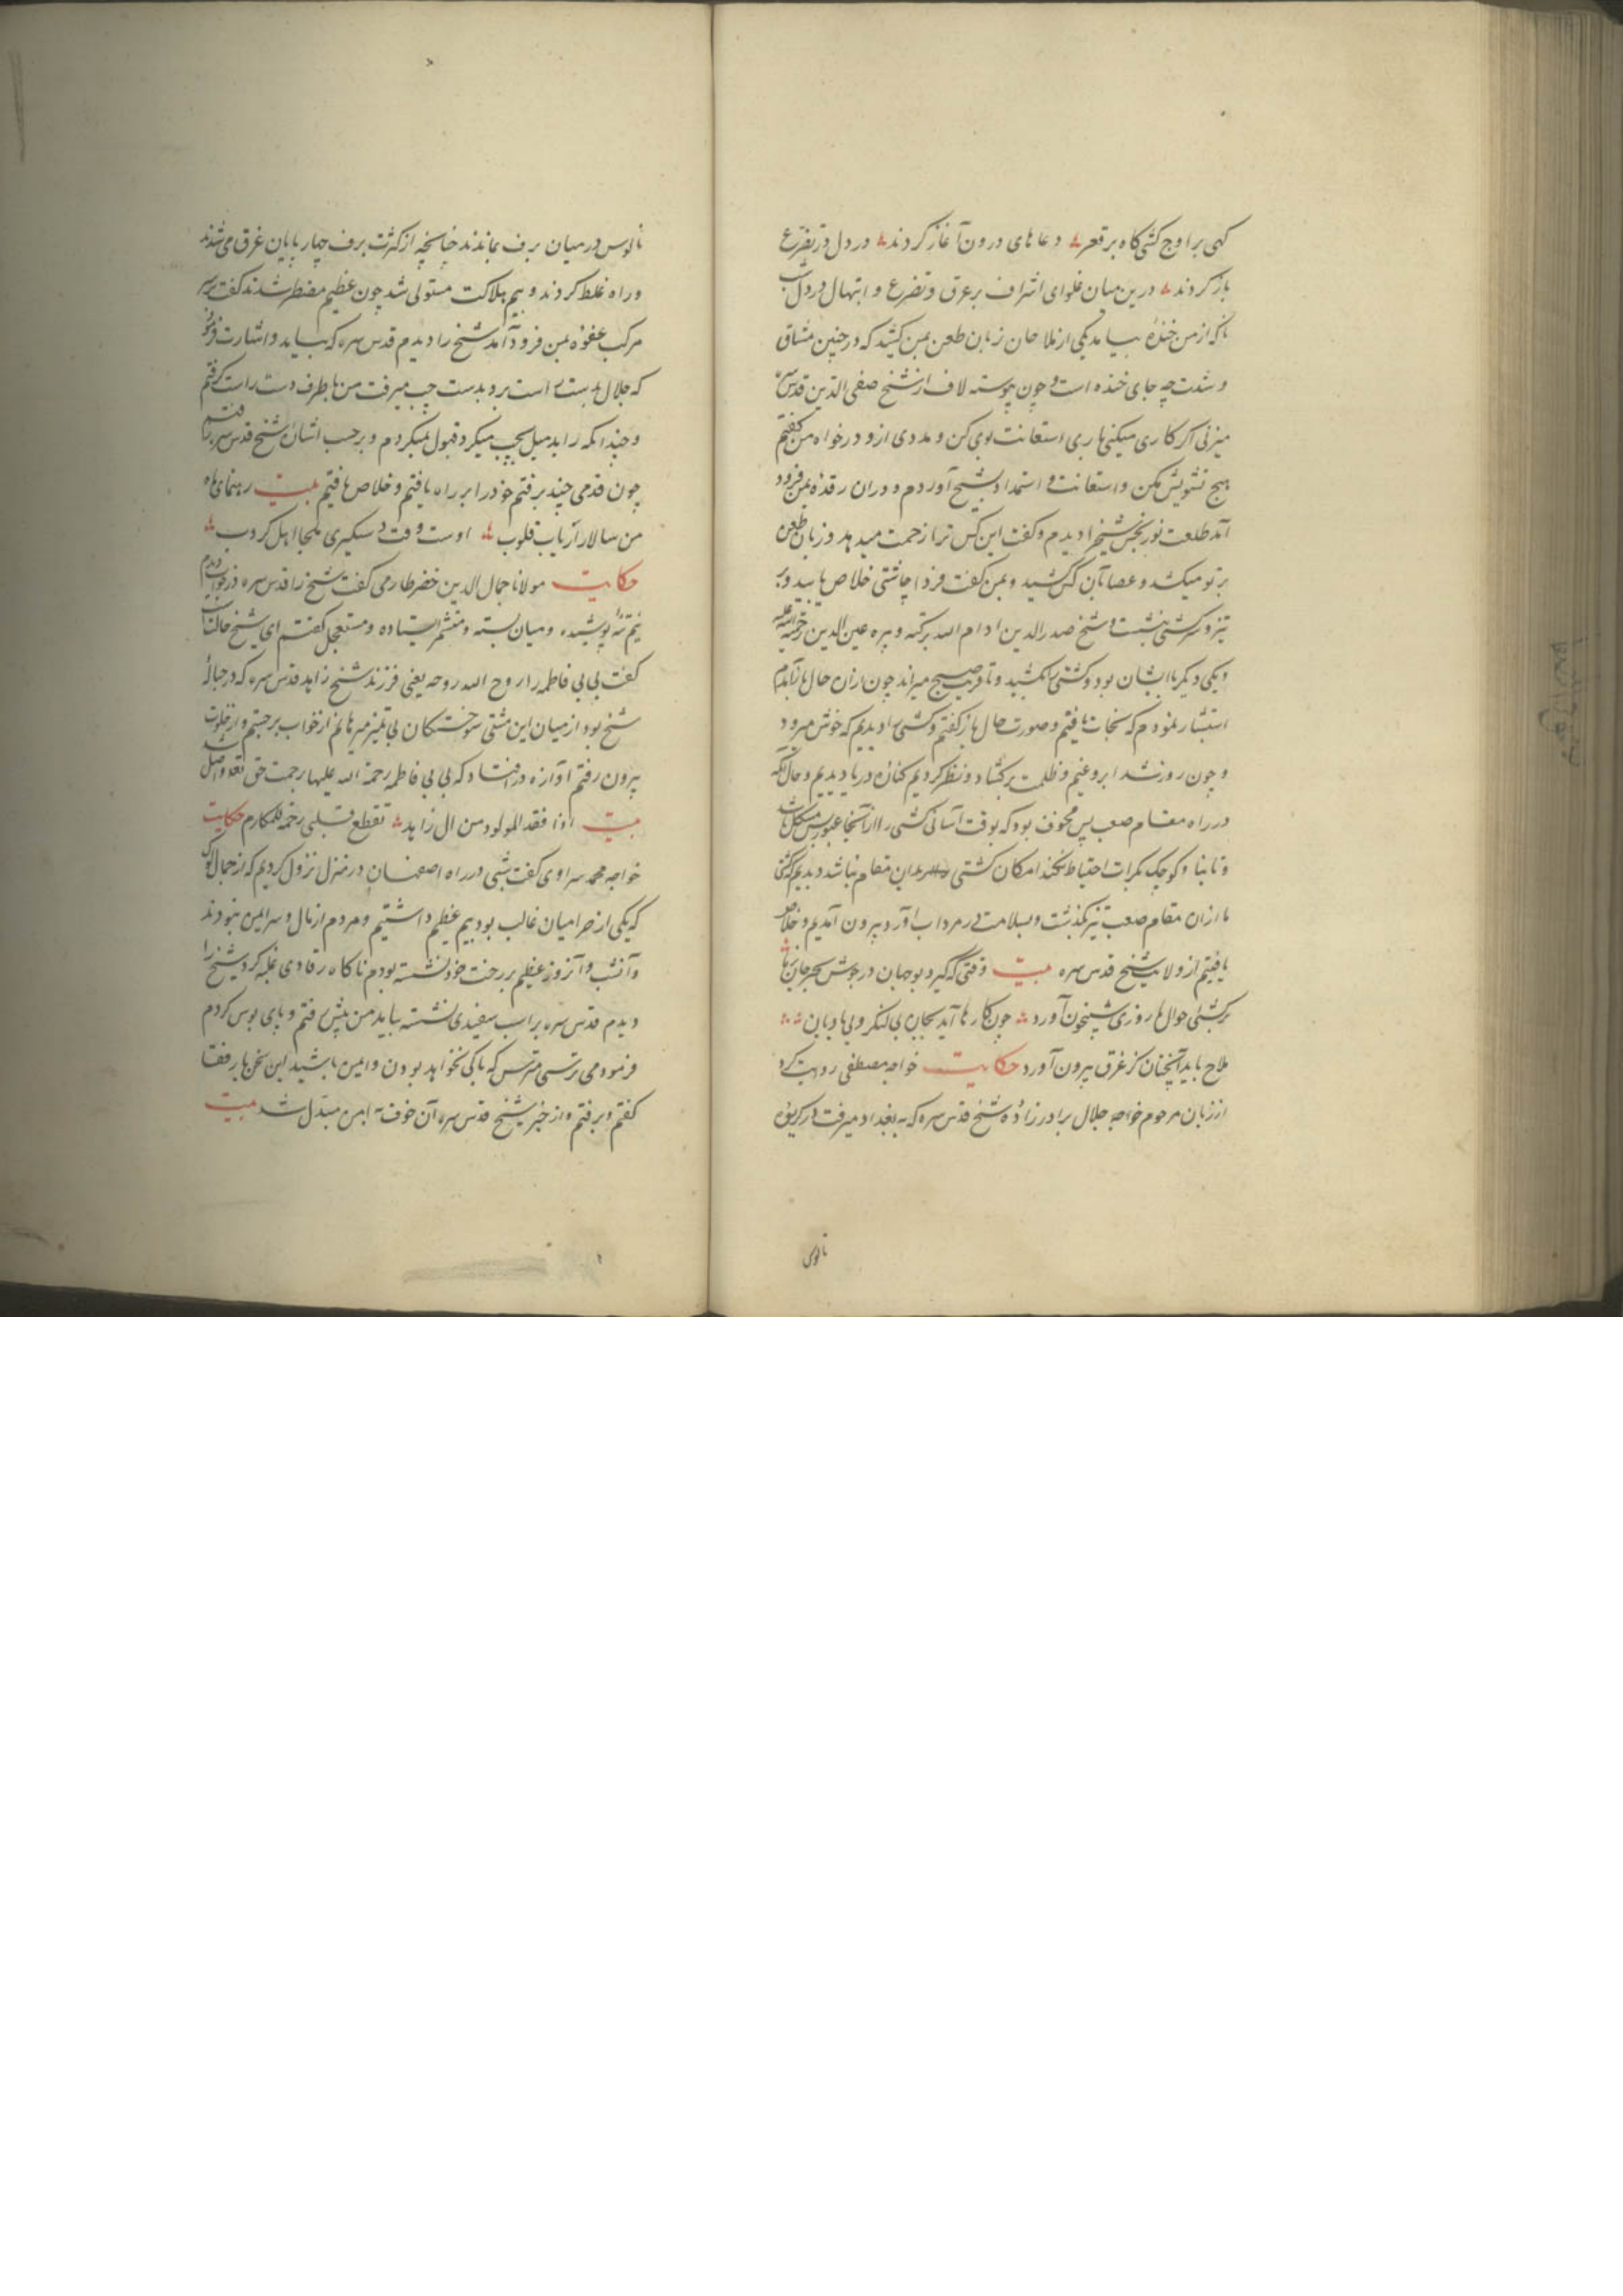 کهی بر اوج کشتی کاه بر قعر دعاهای درون آغاز کردند در دل در تضرع
باز کردند درین میان غلوای اشراف بر غرق و تضرع و ابتهال در دل شب
ناکه از من خنده بیامد یکی از ملاحان زبان طعن بمن کشید که در چنین مشاق
و شدت چه جای خنده است و چون پیوسته لاف از شیخ صفی الدین قدس سره
میزنی اگر کاری میکنی باری استعانت بوی کن و مددی ازو درخواه من کفتم
هیچ تشویش مکن و استعانت و استمداد بشیخ آوردم و دران رقده بمن فرود
آمد طلعت نوربخش شیخ را دیدم و کفت این کس ترا زحمت میدهد و زبان طعن
بر تو میکشد و عصا بآن کس کشید و بمن کفت فردا چاشتی خلاص یابید و بر
تیزو کشتی بنشست و شیخ صدرالدین ادام الله برکته و پیره عین الدین رحمة الله علیه
و یکی دیکر با ایشان بود و کشتی را میکشید و تا قریب صبح میراند چون ازان حال باز آمدم
استبشار نمودم که نجات یافتیم و صورت حال باز کفتم و کشتی را دیدیم که خوش میرود
و چون روز شد ابر و غیم و ظلمت برکشاد و نظر کردیم کناره دریا دیدیم و حال آنکه
در راه مقام صعب پس مخوف بود که بوقت آسانی کشتی را از آنجا عبور بس مشکل باشد
و تا بنا و کوچک بکرات احتیاط نکند امکان کشتی راندن بدان مقام نباشد دیدیم که کشتی
ما ازان مقام صعب تیز بگذشت و بسلامت سر مرداب آورد بیرون آمدیم و خلاص
یافتیم از ولایت شیخ قدس سره بیت وقتی که گیرد بوجهان در جوش بحر جان ربا
بر کشتی حوالها روزی شبیخون آورد چون کارها آید بجان بی لنکر و بی بادبان
ملاح باید آنچنان کز غرق بیرون آورد حکایت خواجه مصطفی روایت کرد
از زبان مرحوم خواجه جلال برادرزاده شیخ قدس سره که به بغداد میرفت در کریوه
نالوس
نالوس در میان برف بماندند چنانچه از کثرت برف چهارپایان غرق می شدند
و راه غلط کردند و بیم هلاکت مستولی شد چون عظیم مضطر شدند کفت بر سر
مرکب غفوه بمن فرود آمد شیخ را دیدم قدس سره که بیامد و اشارت فرمود
که جلال بدست راست برو بدست چپ میرفت من با طرف دست راست کرفتم
و چندانکه راید میل بچپ میکرد قبول نمیکردم و بر حسب اشارت شیخ قدس سره میرفتم
چون قدمی چند برفتم خود را بر راه یافتم و خلاص یافتم بیت رهنمای راه
من سالار ارباب قلوب اوست وقت دستکیری ملجا اهل کروب
حکایت مولانا جمال الدین خضر طارمی کفت شیخ را قدس سره در خواب دیدم
نیم تنه پوشیده و میان بسته و متشمر ایستاده و مستعجل کفتم ای شیخ حال چیست
کفت بی بی فاطمه را روح الله روحه یعنی فرزند شیخ زاهد قدس سره که در حباله
شیخ بود از میان این مشتی سوختکان بی تمیز میرهانم از خواب برجستم و از خلوت
بیرون رفتم آوازه در افتاد که بی بی فاطمه رحمة الله علیها رحمت حق تعالی واصل شد
بیت اذا فقد المولود من ال زاهد تقطع قلبی رحمة للمکارم حکایت
خواجه محمد سراوی کفت شبی در راه اصفهان در منزل نزول کردیم که از جمال لوک
که یکی از حرامیان غالب بود بیم عظیم داشتیم و مردم از مال و سر ایمن نبودند
و آنشب و آنروز عظیم بر رخت خود نشسته بودم ناکاه رقادی غلبه کرد شیخ را
دیدم قدس سره بر اسب سفیدی نشسته بیاید من پیش رفتم و پای بوس کردم
فرمود می ترسی مترس که باکی نخواهد بودن و ایمن باشید این سخن با رفقا
کفتم و برفتم و از خبر شیخ قدس سره آن خوف به امن مبدل شد بیت